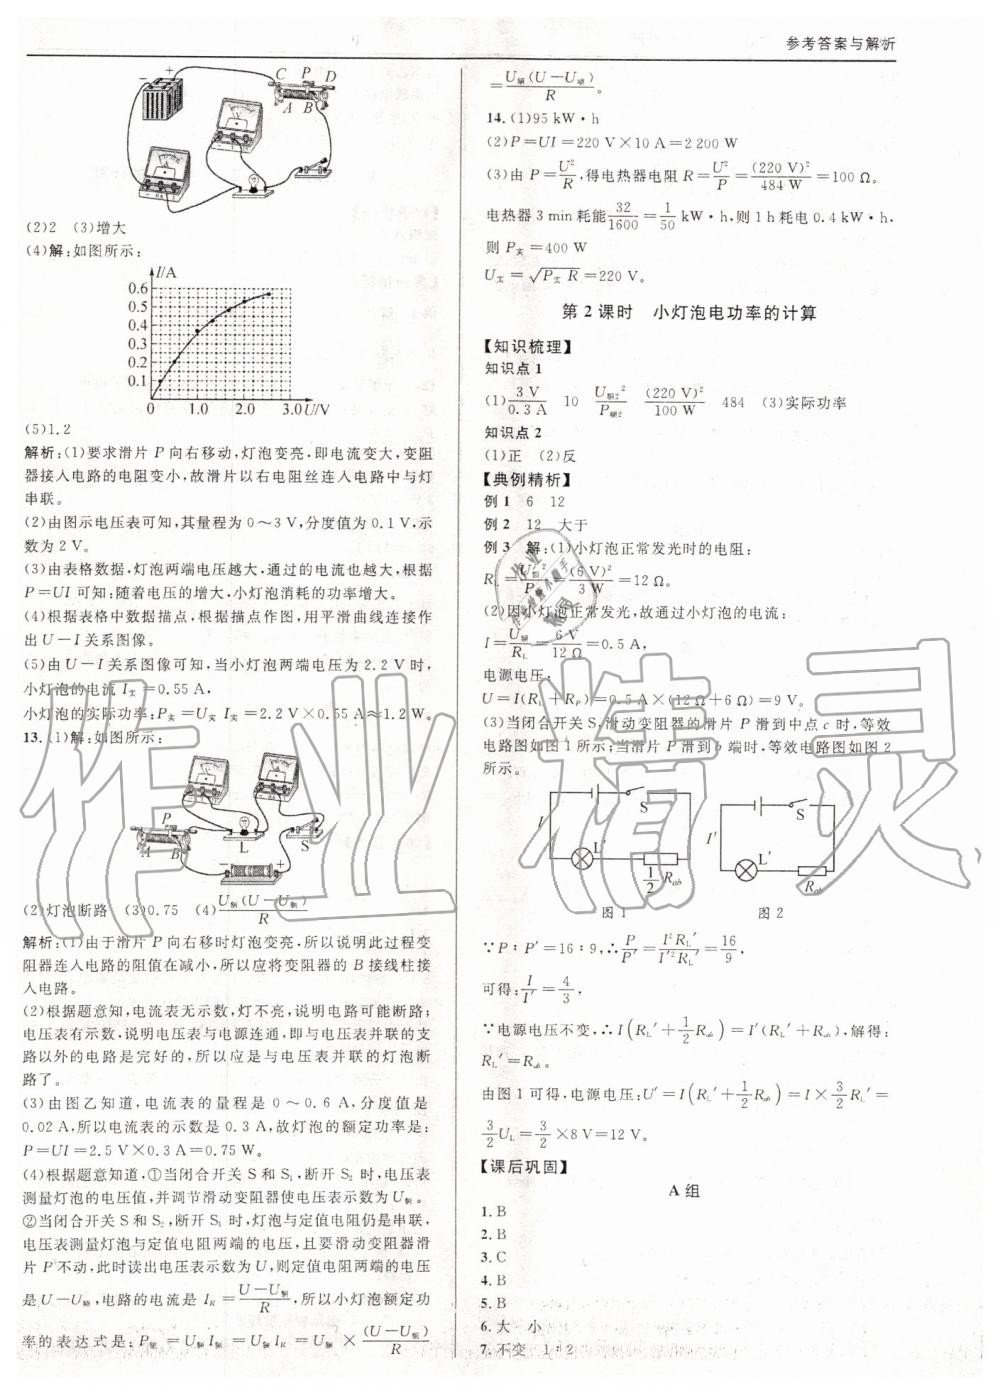 参考答案与解析
− + C P D A B
(2)2 (3)增大
(4)解:如图所示:
I/A
0.6
0.5
0.4
0.3
0.2
0.1
0 1.0 2.0 3.0 U/V
(5)1.2
解析:(1)要求滑片 P 向右移动,灯泡变亮,即电流变大,变阻
器接入电路的电阻变小,故滑片以右电阻丝连入电路中与灯
串联。
(2)由图示电压表可知,其量程为 0～3 V,分度值为 0.1 V,示
数为 2 V。
(3)由表格数据,灯泡两端电压越大,通过的电流也越大,根据
P=UI 可知:随着电压的增大,小灯泡消耗的功率增大。
(4)根据表格中数据描点,根据描点作图,用平滑曲线连接作
出 U－I 关系图像。
(5)由 U－I 关系图像可知,当小灯泡两端电压为 2.2 V 时,
小灯泡的电流 I实=0.55 A,
小灯泡的实际功率:P实=U实 I实=2.2 V×0.55 A≈1.2 W。
13.(1)解:如图所示:
P A B L S − +
(2)灯泡断路 (3)0.75 (4)U额(U－U额)/R
解析:(1)由于滑片 P 向右移时灯泡变亮,所以说明此过程变
阻器连入电路的阻值在减小,所以应将变阻器的 B 接线柱接
入电路。
(2)根据题意知,电流表无示数,灯不亮,说明电路可能断路;
电压表有示数,说明电压表与电源连通,即与电压表并联的支
路以外的电路是完好的,所以应是与电压表并联的灯泡断
路了。
(3)由图乙知道,电流表的量程是 0～0.6 A,分度值是
0.02 A,所以电流表的示数是 0.3 A,故灯泡的额定功率是:
P=UI=2.5 V×0.3 A=0.75 W。
(4)根据题意知道,①当闭合开关 S 和 S₁,断开 S₂ 时,电压表
测量灯泡的电压值,并调节滑动变阻器使电压表示数为 U额。
②当闭合开关 S 和 S₂,断开 S₁ 时,灯泡与定值电阻仍是串联,
电压表测量灯泡与定值电阻两端的电压,且要滑动变阻器滑
片 P 不动,此时读出电压表示数为 U,则定值电阻两端的电压
是 U－U额,电路的电流是 I_R=(U－U额)/R,所以小灯泡额定功
率的表达式是:P额=U额I额=U额 I_R=U额×(U－U额)/R
=U额(U－U额)/R。
14.(1)95 kW·h
(2)P=UI=220 V×10 A=2 200 W
(3)由 P=U²/R,得电热器电阻 R=U²/P=(220 V)²/484 W=100 Ω。
电热器 3 min 耗能32/1600=1/50 kW·h,则 1 h 耗电 0.4 kW·h,
则 P实=400 W
U实=√(P实 R)=220 V。
第 2 课时 小灯泡电功率的计算
【知识梳理】
知识点 1
(1)3 V/0.3 A 10 U额2²/P额2 (220 V)²/100 W 484 (3)实际功率
知识点 2
(1)正 (2)反
【典例精析】
例 1 6 12
例 2 12 大于
例 3 解:(1)小灯泡正常发光时的电阻:
R_L=U额²/P额=(6 V)²/3 W=12 Ω。
(2)因小灯泡正常发光,故通过小灯泡的电流:
I=U额/R_L=6 V/12 Ω=0.5 A,
电源电压:
U=I(R_L+R_P)=0.5 A×(12 Ω+6 Ω)=9 V。
(3)当闭合开关 S,滑动变阻器的滑片 P 滑到中点 c 时,等效
电路图如图 1 所示;当滑片 P 滑到 b 端时,等效电路图如图 2
所示。
I S L′ 1/2 R_ab
I′ S L′ R_ab
图 1 图 2
∵P∶P′=16∶9,∴P/P′=I²R_L′/I′²R_L′=16/9
可得:I/I′=4/3,
∵电源电压不变,∴I(R_L′+1/2R_ab)=I′(R_L′+R_ab),解得:
R_L′=R_ab。
由图 1 可得,电源电压:U′=I(R_L′+1/2R_ab)=I×3/2R_L′=
3/2U_L=3/2×8 V=12 V。
【课后巩固】
A 组
1. B
2. B
3. C
4. B
5. B
6. 大 小
7. 不变 1∶2
作业精灵